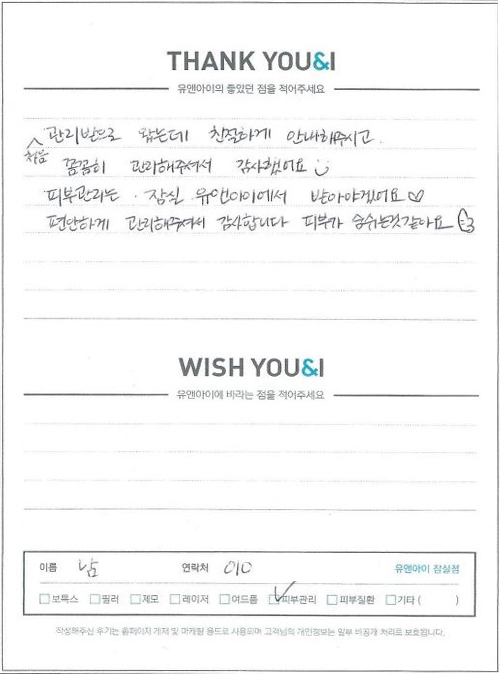 THANK YOU&I
유앤아이의 좋았던 점을 적어주세요
처음 관리받으로 왔는데 친절하게 안내해주시고.
꼼꼼히 관리해주셔서 감사했어요
피부관리는 . 잠실 유앤아이에서 받아야겠어요♡
편안하게 관리해주셔서 감사합니다 피부가 숨쉬는것같아요
WISH YOU&I
유앤아이에 바라는 점을 적어주세요
이름 남 연락처 010 유앤아이 잠실점
보톡스 필러 제모 레이저 여드름 피부관리 피부질환 기타 ( )
작성해주신 후기는 홈페이지 게재 및 마케팅 용도로 사용되며 고객님의 개인정보는 일부 비공개 처리로 보호됩니다.